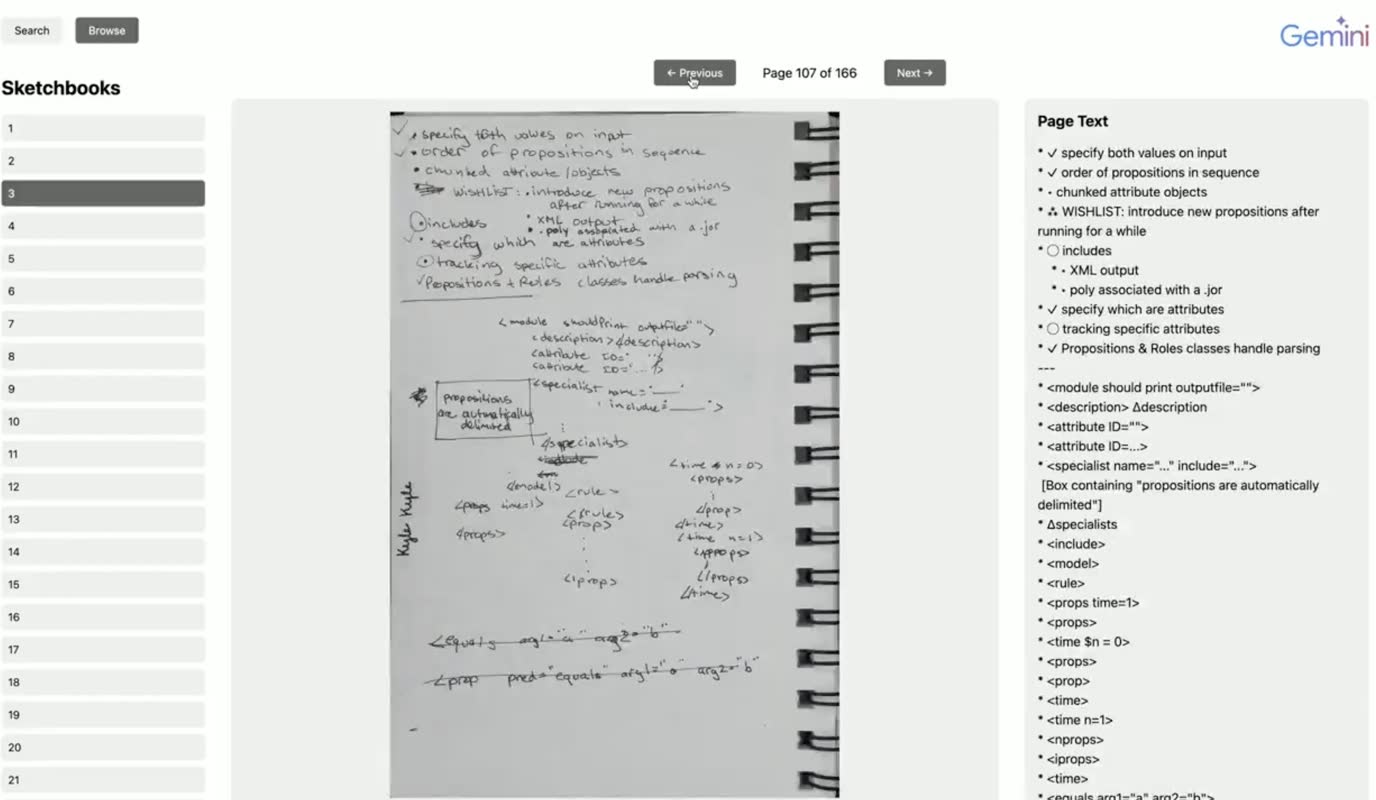 Search
Browse
Gemini
← Previous
Page 107 of 166
Next →
Sketchbooks
1
2
3
4
5
6
7
8
9
10
11
12
13
14
15
16
17
18
19
20
21
✓ • specify both values on input
✓ • order of propositions in sequence
• chunked attribute/objects
WISHLIST: • introduce new propositions
after running for a while
includes
• XML output
• poly associated with a .jor
✓ • specify which are attributes
tracking specific attributes
✓ Propositions + Rules classes handle parsing
<module shouldPrint outputfile="">
<description></description>
<attribute ID="
<attribute ID="..."/>
<specialist name="___"
include="___">
propositions
are automatically
delimited
</specialist>
</model>
<rule>
<props time=1>
</rule>
<prop>
</props>
</prop>
<time n=0>
<props>
</prop>
</time>
<time n=1>
<props>
</props>
</time>
Kyle Kyle
<equals arg1="a" arg2="b"
<prop pred="equals" arg1="a" arg2="b"
Page Text
* ✓ specify both values on input
* ✓ order of propositions in sequence
* • chunked attribute objects
* ஃ WISHLIST: introduce new propositions after
running for a while
* ◯ includes
* • XML output
* • poly associated with a .jor
* ✓ specify which are attributes
* ◯ tracking specific attributes
* ✓ Propositions & Roles classes handle parsing
---
* <module should print outputfile="">
* <description> Δdescription
* <attribute ID="">
* <attribute ID=...>
* <specialist name="..." include="...">
[Box containing "propositions are automatically
delimited"]
* Δspecialists
* <include>
* <model>
* <rule>
* <props time=1>
* <props>
* <time $n = 0>
* <props>
* <prop>
* <time>
* <time n=1>
* <nprops>
* <iprops>
* <time>
* <equals arg1="a" arg2="b">